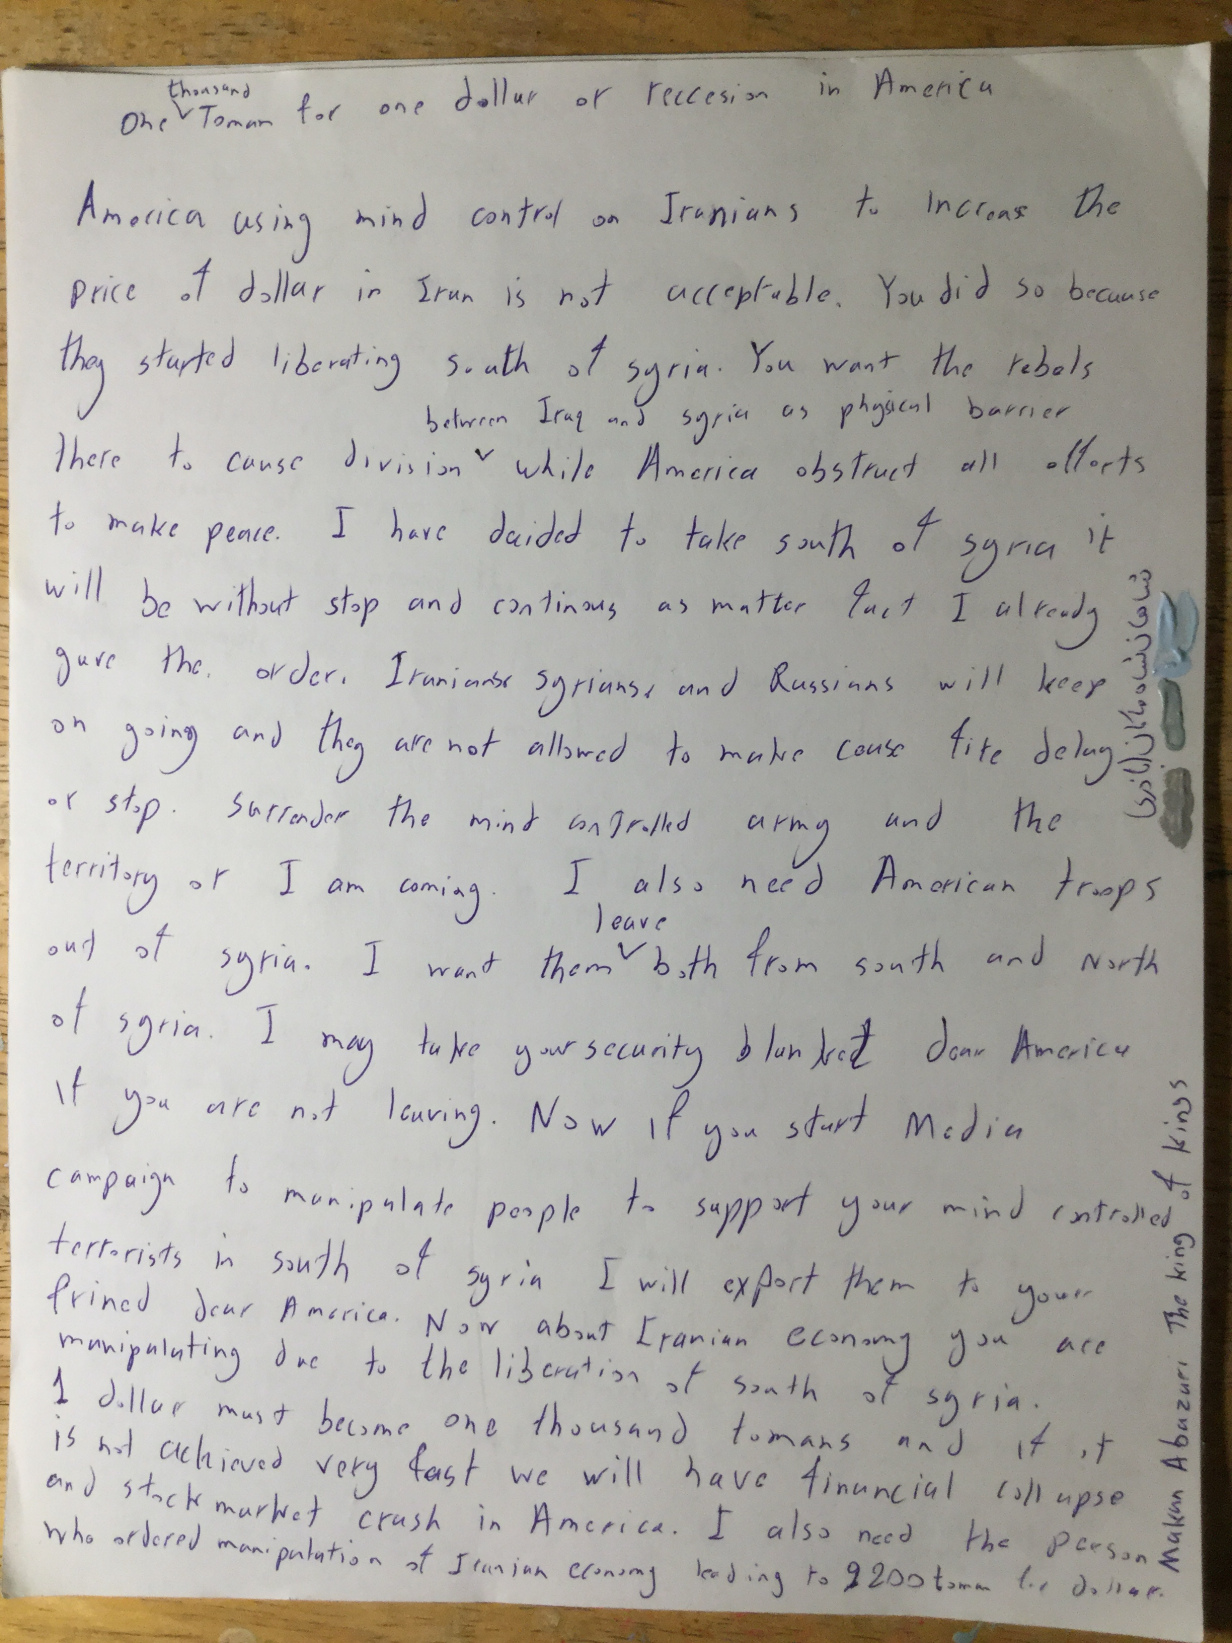 One thousand Toman for one dollar or reccesion in America
America using mind control on Iranians to Increase the
price of dollar in Iran is not acceptable. You did so because
they started liberating south of syria. You want the rebels
between Iraq and syria as physical barrier
there to cause division while America obstruct all efforts
to make peace. I have decided to take south of syria it
will be without stop and continous as matter fact I already
gave the order. Iranians syrians, and Russians will keep
on going and they are not allowed to make cease fire delay
or stop. Surrender the mind controlled army and the
territory or I am coming. I also need American troops
leave
out of syria. I want them both from south and North
of syria. I may take your security blanket dear America
if you are not leaving. Now if you start Media
campaign to manipulate people to support your mind controlled
terrorists in south of syria I will export them to your
frined dear America. Now about Iranian economy you are
manipulating due to the liberation of south of syria.
1 dollar must become one thousand tomans and if it
is not achieved very fast we will have financial collapse
and stock market crush in America. I also need the person
who ordered manipulation of Iranian economy leading to 9200 toman for dollar.
Makan Abazari The king of kings
شاهان شاه مکان اباذری